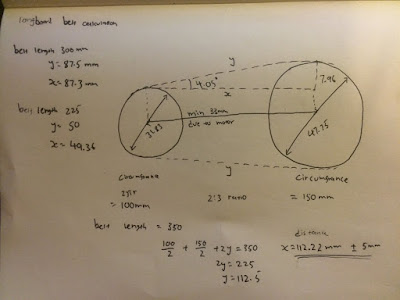 longboard belt calculation
belt length 300mm
y = 87.5 mm
x = 87.3 mm
belt length 225
y = 50
x = 49.36
y
4.05°
x
7.96
min. 33mm
31.83
47.75
y
circumfrance
= 100mm
2:3 ratio
circumfrance
= 150mm
belt length = 350
100/2 + 150/2 + 2y = 350
2y = 225
y = 112.5
distance
x = 112.22 mm ± 5mm